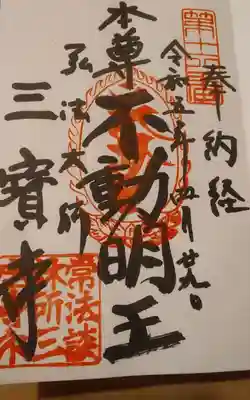 奉納経
第十六番
令和五年四月廿九日
本尊不動明王
弘法大師
三寶寺
常法談
林所三